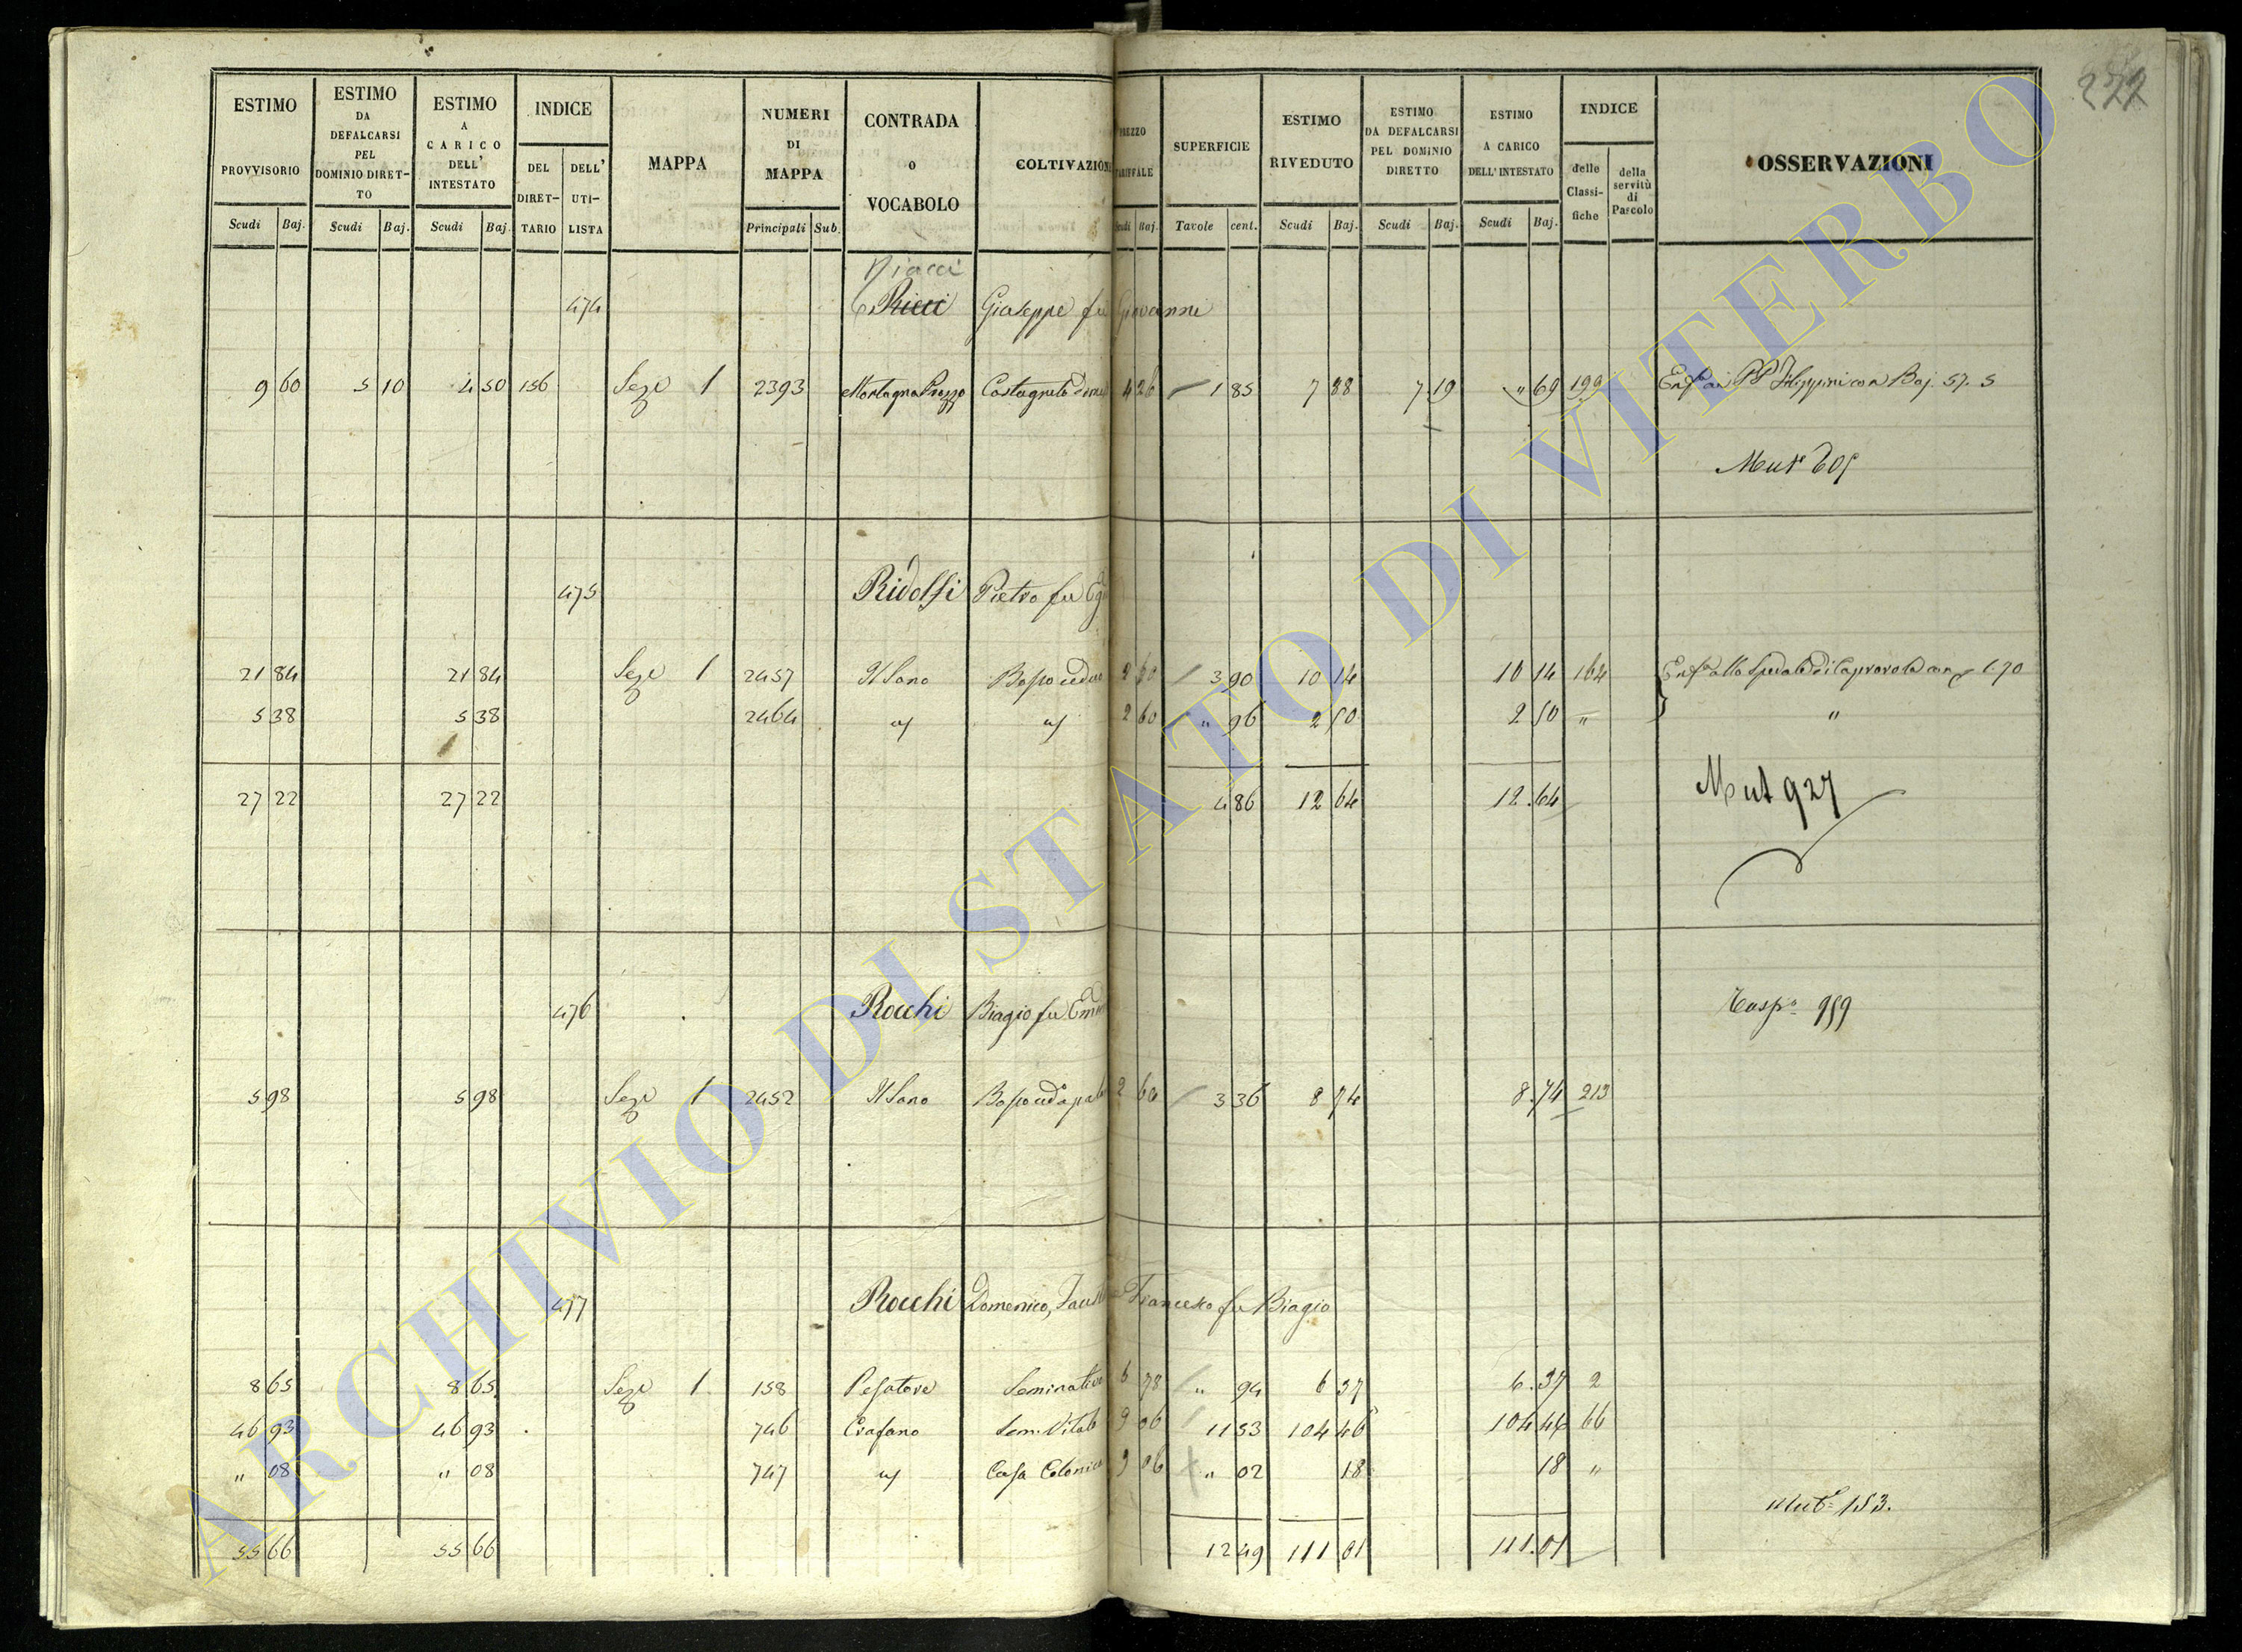 222
ESTIMO PROVVISORIO Scudi Baj.
ESTIMO DA DEFALCARSI PEL DOMINIO DIRET-TO Scudi Baj.
ESTIMO A CARICO DELL' INTESTATO Scudi Baj.
INDICE DEL DIRET-TARIO DELL' UTI-LISTA
MAPPA
NUMERI DI MAPPA Principali Sub.
CONTRADA O VOCABOLO
COLTIVAZION
REZZO ARIFFALE udi Baj.
SUPERFICIE Tavole cent.
ESTIMO RIVEDUTO Scudi Baj.
ESTIMO DA DEFALCARSI PEL DOMINIO DIRETTO Scudi Baj.
ESTIMO A CARICO DELL'INTESTATO Scudi Baj.
INDICE delle Classi-fiche della servitù di Pascolo
OSSERVAZIONI
474 Ricci Giuseppe fu Giovanni
9 60 5 10 4 50 156 Seze 1 2393 Montagna 4 26 1 85 7 88 7 19 " 69 199 PP Filippini con Baj. 57. 5
Mut 605
475 Ridolfi Pietro fu
21 84 21 84 Seze 1 2457 Il Sano 2 60 3 90 10 14 10 14 164 1.70
5 38 5 38 2464 2 60 " 96 2 50 2 50 " "
27 22 27 22 4 86 12 64 12.64
Mut 927
476 Rocchi Biagio fu
959
5 98 5 98 Seze 1 2452 Il Sano 2 60 3 36 8 74 8.74 213
477 Rocchi Domenico, Francesco fu Biagio
8 65 8 65 Seze 1 158 Pesatore Seminativo 6 78 " 94 6 37 6.37 2
46 93 46 93 746 Crafano Sem. Vitato 9 06 11 53 104 46 104 46 66
" 08 " 08 747 Casa Colonica 9 06 " 02 18 18 "
Mut 153.
55 66 55 66 12 49 111 01 111.01
ARCHIVIO DI STATO DI VITERBO